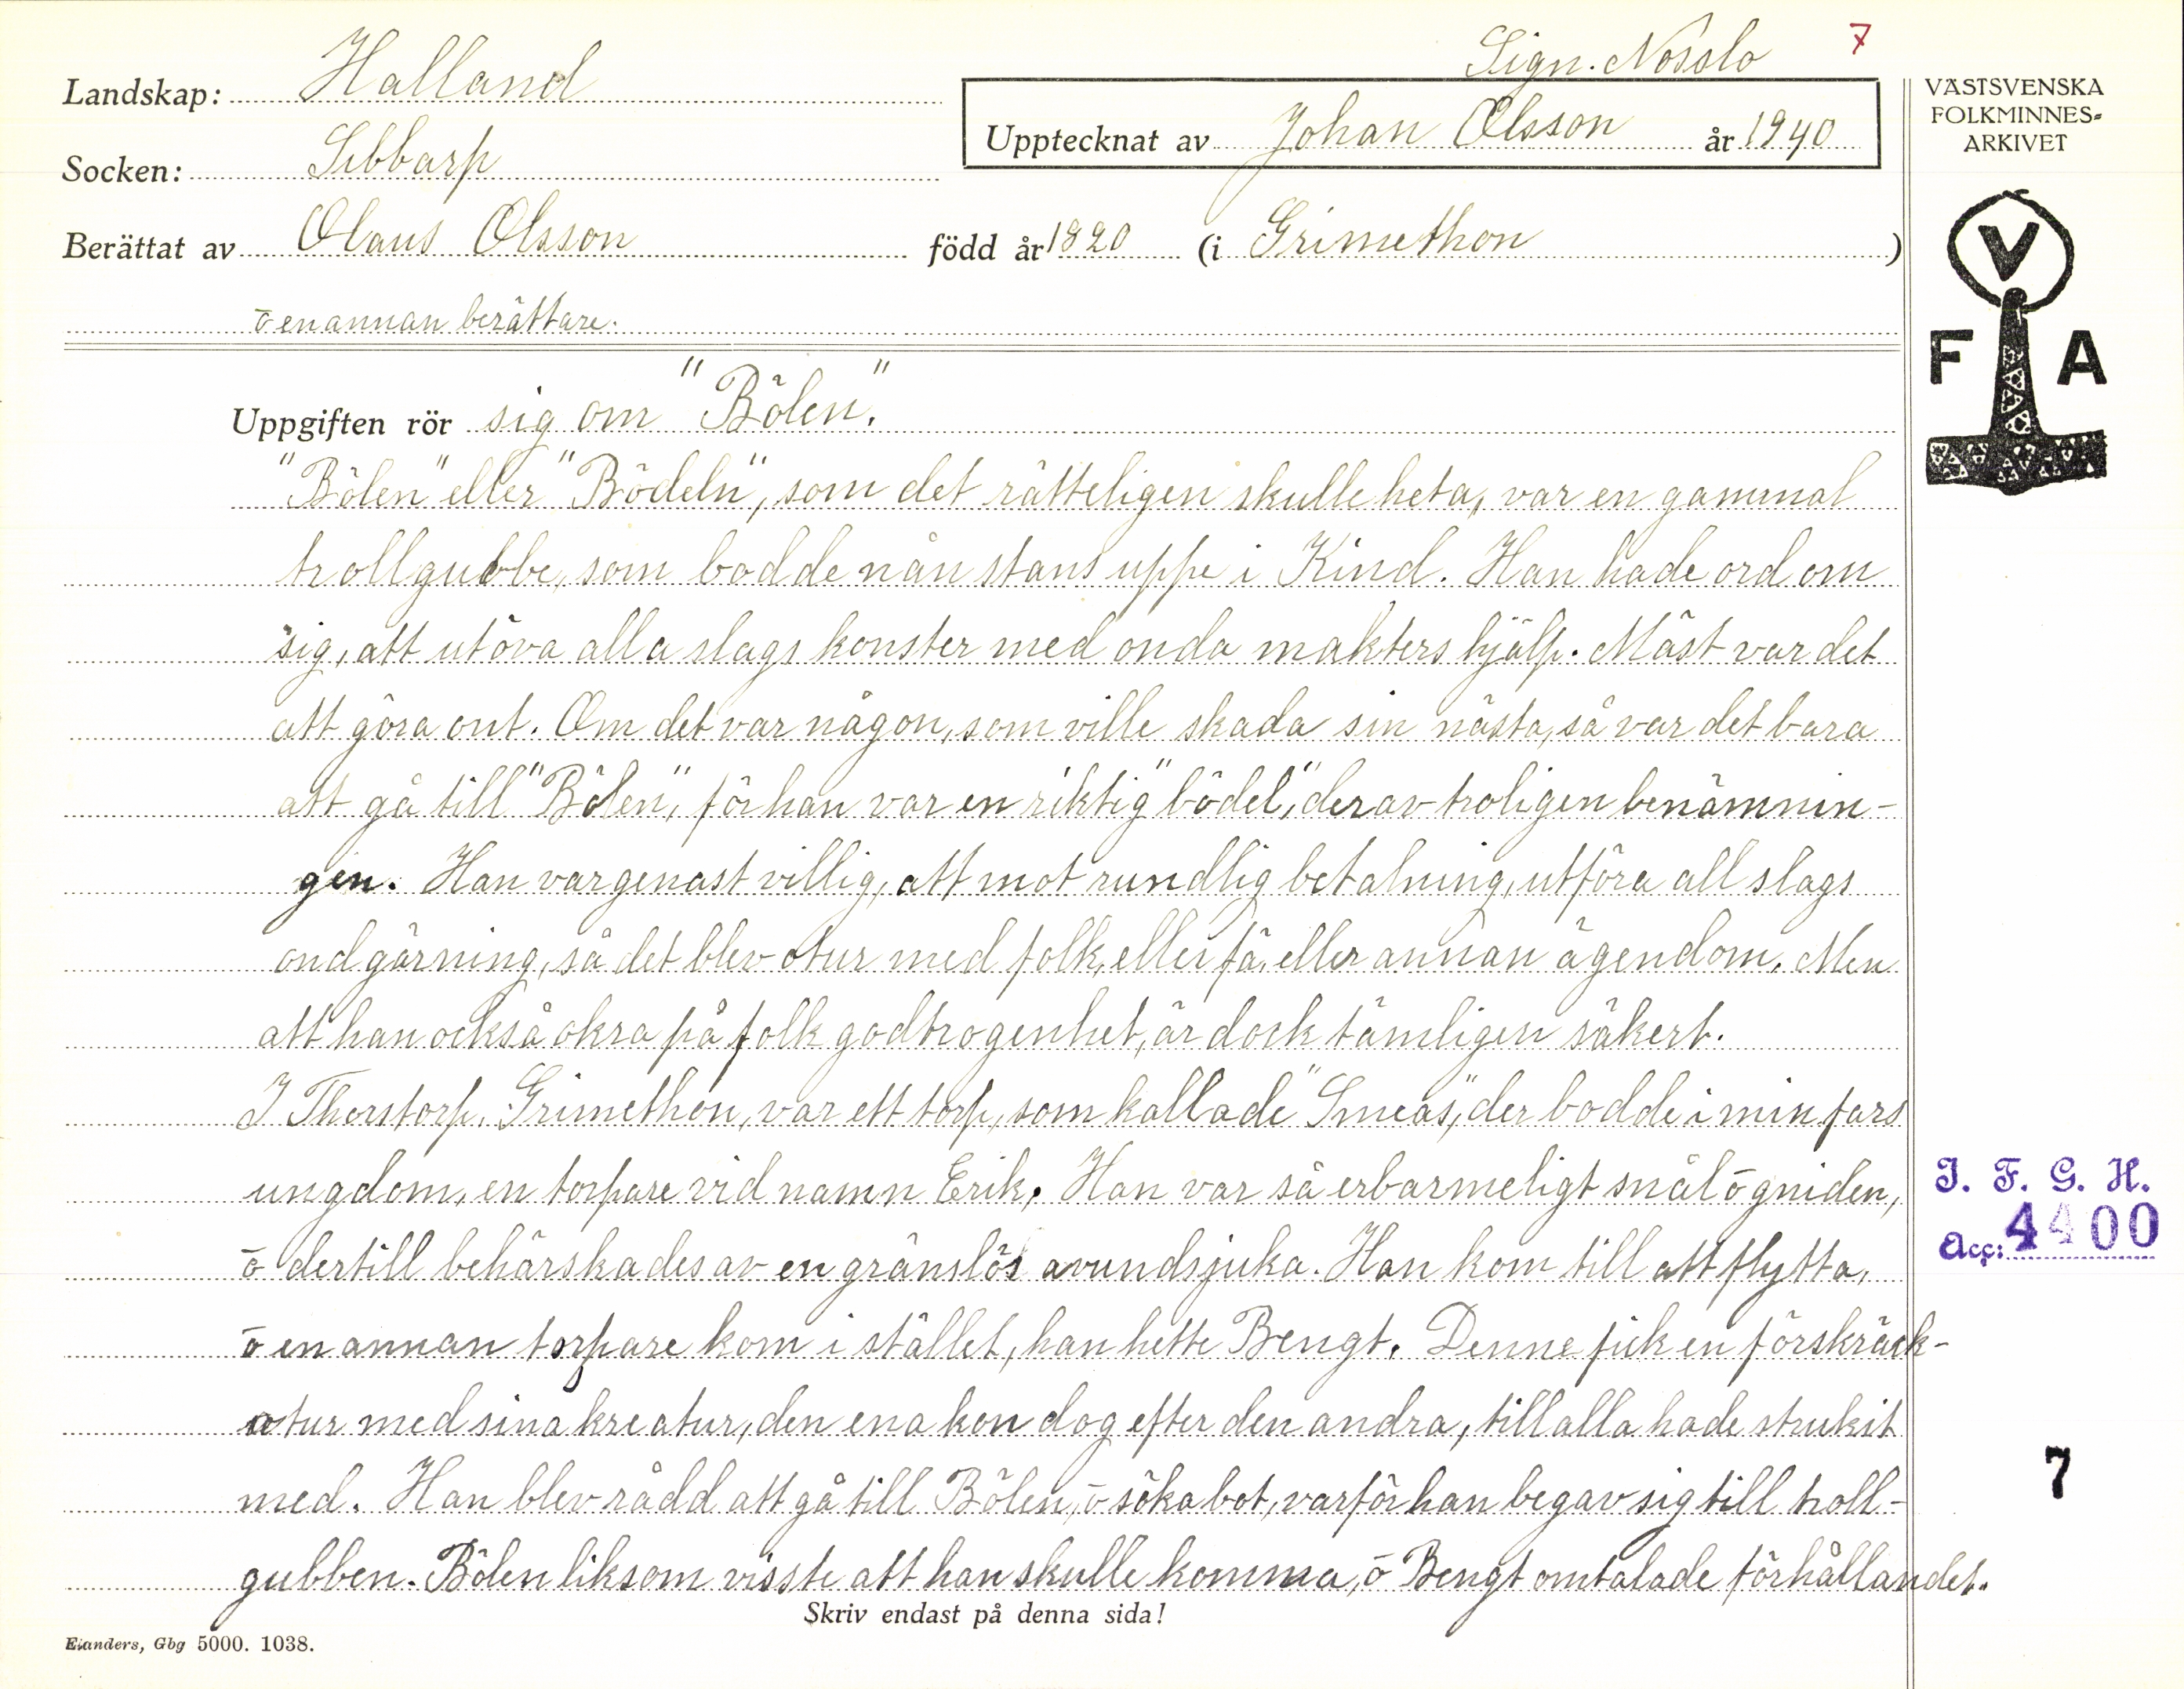 Sign. Nosslo 7
Landskap: Halland
Upptecknat av Johan Olsson år 1940
Socken: Sibbarp
Berättat av Olaus Olsson född år 1820 (i Grimethon)
ō en annan berättare.
VÄSTSVENSKA
FOLKMINNES-
ARKIVET
V
F A
Uppgiften rör sig om "Bölen".
"Bölen" eller "Bödeln", som det rätteligen skulle heta, var en gammal
trollgubbe, som bodde nån stans uppe i Kind. Han hade ord om
sig, att utöva alla slags konster med onda makters hjälp. Mäst var det
att göra ont. Om det var någon, som ville skada sin nästa, så var det bara
att gå till "Bölen", för han var en riktig "bödel", derav troligen benämnin-
gen. Han var genast villig, att mot rundlig betalning, utföra all slags
ond gärning, så det blev otur med folk, eller fä, eller annan ägendom. Men
att han också okra på folk godtrogenhet, är dock tämligen säkert.
I Thorstorp, Grimethon, var ett torp, som kallade "Smeás", der bodde i min fars
ungdom, en torpare vid namn Erik. Han var så erbarmeligt snål ō gniden,
ō dertill behärskades av en gränslös avundsjuka. Han kom till att flytta,
ō en annan torpare kom i stället, han hette Bengt. Denne fick en förskräck-
otur med sina kreatur, den ena kon dog efter den andra, till alla hade strukit
med. Han blev rådd att gå till Bölen, ō söka bot, varför han begav sig till troll-
gubben. Bölen liksom visste att han skulle komma, ō Bengt omtalade förhållandet.
I. F. G. H.
Acc: 4400
7
Skriv endast på denna sida!
Elanders, Gbg 5000. 1038.